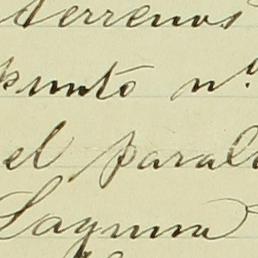 terrenos
punto n.º
el paral
Laguna